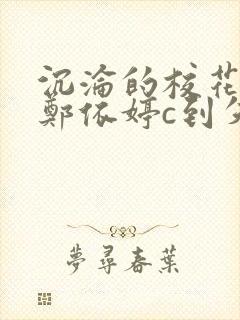 沉淪的校花
鄭依婷c到
夢尋春葉